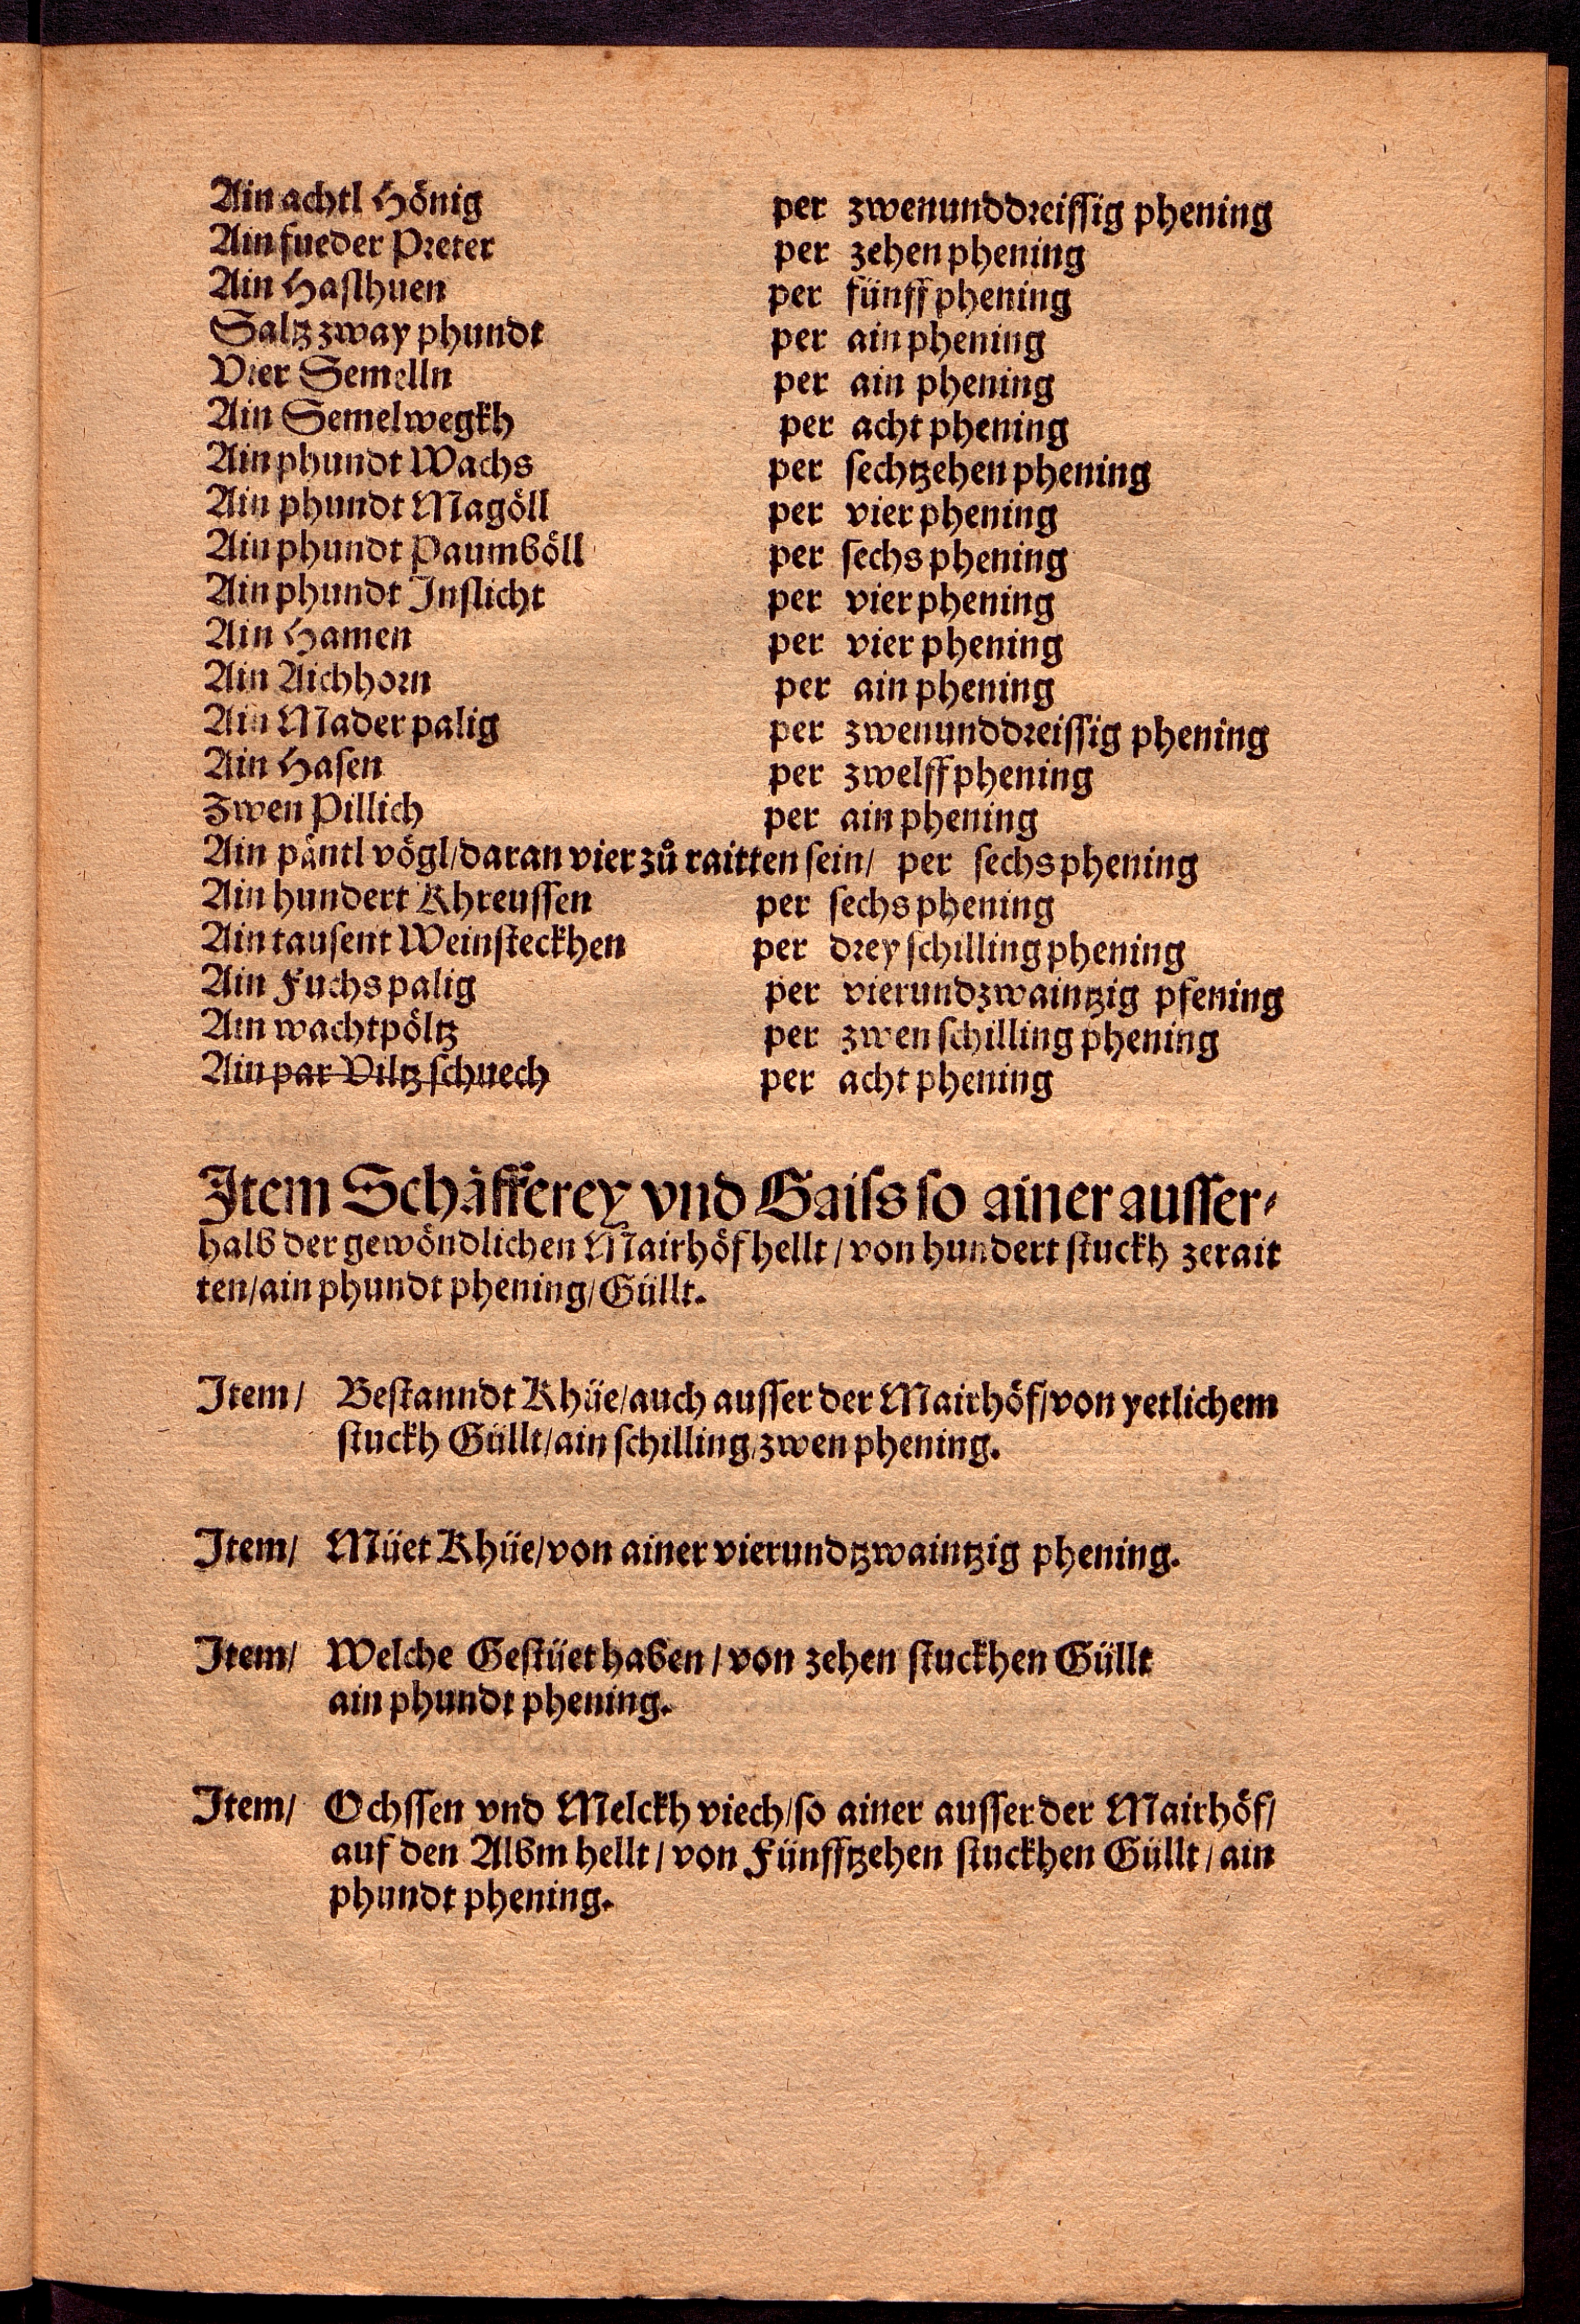 Ain achtl Hönig per zwenunddreissig phening
Ain fueder Preter per zehen phening
Ain Haslhuen per fünff phening
Saltz zway phundt per ain phening
Vier Semelln per ain phening
Ain Semelwegkh per acht phening
Ain phundt Wachs per sechtzehen phening
Ain phundt Magöll per vier phening
Ain phundt Paumböll per sechs phening
Ain phundt Inslicht per vier phening
Ain Hamen per vier phening
Ain Aichhorn per ain phening
Ain Mader palig per zwenunddreissig phening
Ain Hasen per zwelff phening
Zwen Pillich per ain phening
Ain päntl vögl/daran vier zů raitten sein/ per sechs phening
Ain hundert Khreussen per sechs phening
Ain tausent Weinsteckhen per drey schilling phening
Ain Fuchs palig per vierundzwaintzig pfening
Ain wachtpöltz per zwen schilling phening
Ain par Viltz schuech per acht phening
Item Schäfferey vnd Gaiss so ainer ausser-
halb der gewöndlichen Mairhöf hellt / von hundert stuckh zerait
ten/ain phundt phening/Güllt.
Item/ Bestanndt Khüe/auch ausser der Mairhöf/von yetlichem
stuckh Güllt/ain schilling/zwen phening.
Item/ Müet Khüe/von ainer vierundtzwaintzig phening.
Item/ Welche Gestüet haben / von zehen stuckhen Güllt
ain phundt phening.
Item/ Ochssen vnd Melckh viech/so ainer ausser der Mairhöf/
auf den Albm hellt / von Fünfftzehen stuckhen Güllt / ain
phundt phening.